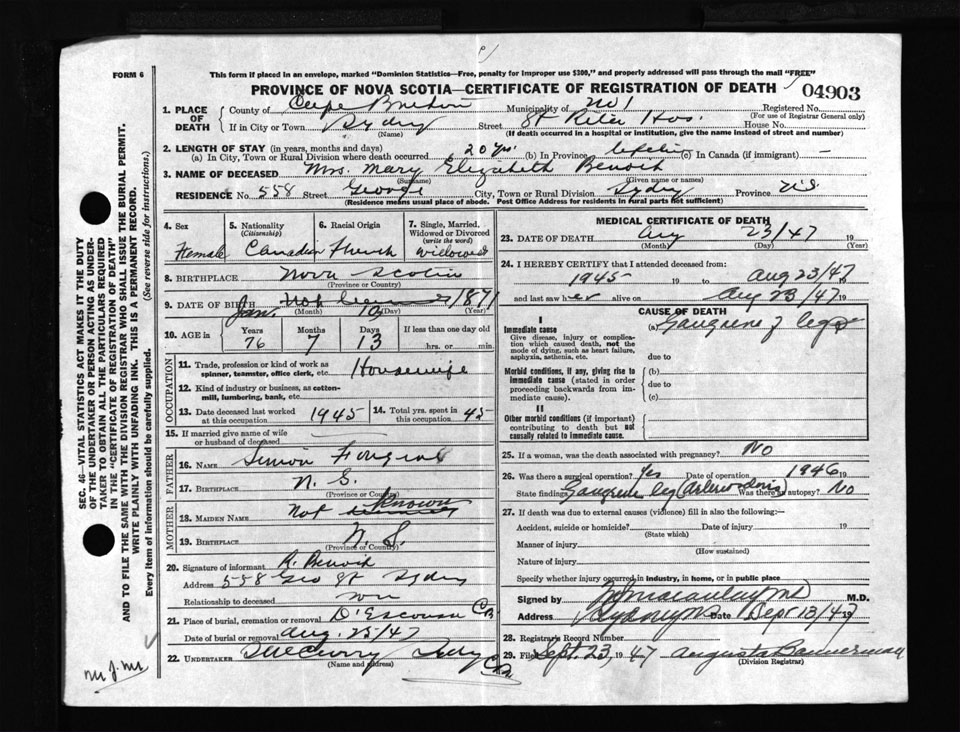 FORM 6
This form if placed in an envelope, marked "Dominion Statistics—Free, penalty for Improper use $300," and properly addressed will pass through the mail "FREE"
PROVINCE OF NOVA SCOTIA—CERTIFICATE OF REGISTRATION OF DEATH
04903
1. PLACE OF DEATH
County of Cape Breton Municipality of No 1 Registered No.
(For use of Registrar General only)
If in City or Town Sydney Street St Rita Hos. House No.
(Name) (If death occurred in a hospital or institution, give the name instead of street and number)
2. LENGTH OF STAY (in years, months and days)
(a) In City, Town or Rural Division where death occurred 20 yrs. (b) In Province life (c) In Canada (if immigrant) —
3. NAME OF DECEASED Mrs. Mary Elizabeth Benoit
(Surname) (Given name or names)
RESIDENCE No. 558 Street George City, Town or Rural Division Sydney Province N.S.
(Residence means usual place of abode. Post Office Address for residents in rural parts not sufficient)
4. Sex
Female
5. Nationality (Citizenship)
Canadian
6. Racial Origin
French
7. Single, Married, Widowed or Divorced (write the word)
Widowed
8. BIRTHPLACE Nova Scotia
(Province or Country)
9. DATE OF BIRTH Jan. 10 1871
(Month) (Day) (Year)
10. AGE in
Years Months Days If less than one day old
76 7 13 hrs. or min.
OCCUPATION
11. Trade, profession or kind of work as spinner, teamster, office clerk, etc. Housewife
12. Kind of industry or business, as cotton-mill, lumbering, bank, etc.
13. Date deceased last worked at this occupation 1945
14. Total yrs. spent in this occupation 45
15. If married give name of wife or husband of deceased
FATHER
16. NAME Simon
17. BIRTHPLACE N. S.
(Province or Country)
MOTHER
18. MAIDEN NAME Not known
19. BIRTHPLACE N. S.
(Province or Country)
20. Signature of informant R. Benoit
Address 558 Geo St Sydney
Relationship to deceased son
21. Place of burial, cremation or removal D'Escousse CB
Date of burial or removal Aug. 25/47
22. UNDERTAKER Sydney CB
(Name and address)
MEDICAL CERTIFICATE OF DEATH
23. DATE OF DEATH Aug 23/47 19
(Month) (Day) (Year)
24. I HEREBY CERTIFY that I attended deceased from:
1945 19 to Aug 23/47
and last saw her alive on Aug 23/47 19
CAUSE OF DEATH
I
Immediate cause
Give disease, injury or complication which caused death, not the mode of dying, such as heart failure, asphyxia, asthenia, etc.
(a) Gangrene of legs
due to
Morbid conditions, if any, giving rise to immediate cause (stated in order proceeding backwards from immediate cause).
(b)
due to
(c)
II
Other morbid conditions (if important) contributing to death but not causally related to immediate cause.
25. If a woman, was the death associated with pregnancy? No
26. Was there a surgical operation? Yes Date of operation 1946 19
State findings Gangrene leg Was there autopsy? No
27. If death was due to external causes (violence) fill in also the following:—
Accident, suicide or homicide? Date of injury 19
(State which)
Manner of injury
(How sustained)
Nature of injury
Specify whether injury occurred in industry, in home, or in public place
Signed by Macaulay MD M.D.
Address Sydney NS Date Sept 13/47 19
28. Registrar's Record Number
29. Filed Sept. 23, 1947 Augusta Bannerman
(Division Registrar)
SEC. 46—VITAL STATISTICS ACT MAKES IT THE DUTY OF THE UNDERTAKER OR PERSON ACTING AS UNDERTAKER TO OBTAIN ALL THE PARTICULARS REQUIRED IN THE "CERTIFICATE OF REGISTRATION OF DEATH"
AND TO FILE THE SAME WITH THE DIVISION REGISTRAR WHO SHALL ISSUE THE BURIAL PERMIT.
WRITE PLAINLY WITH UNFADING INK. THIS IS A PERMANENT RECORD.
Every item of information should be carefully supplied. (See reverse side for instructions.)